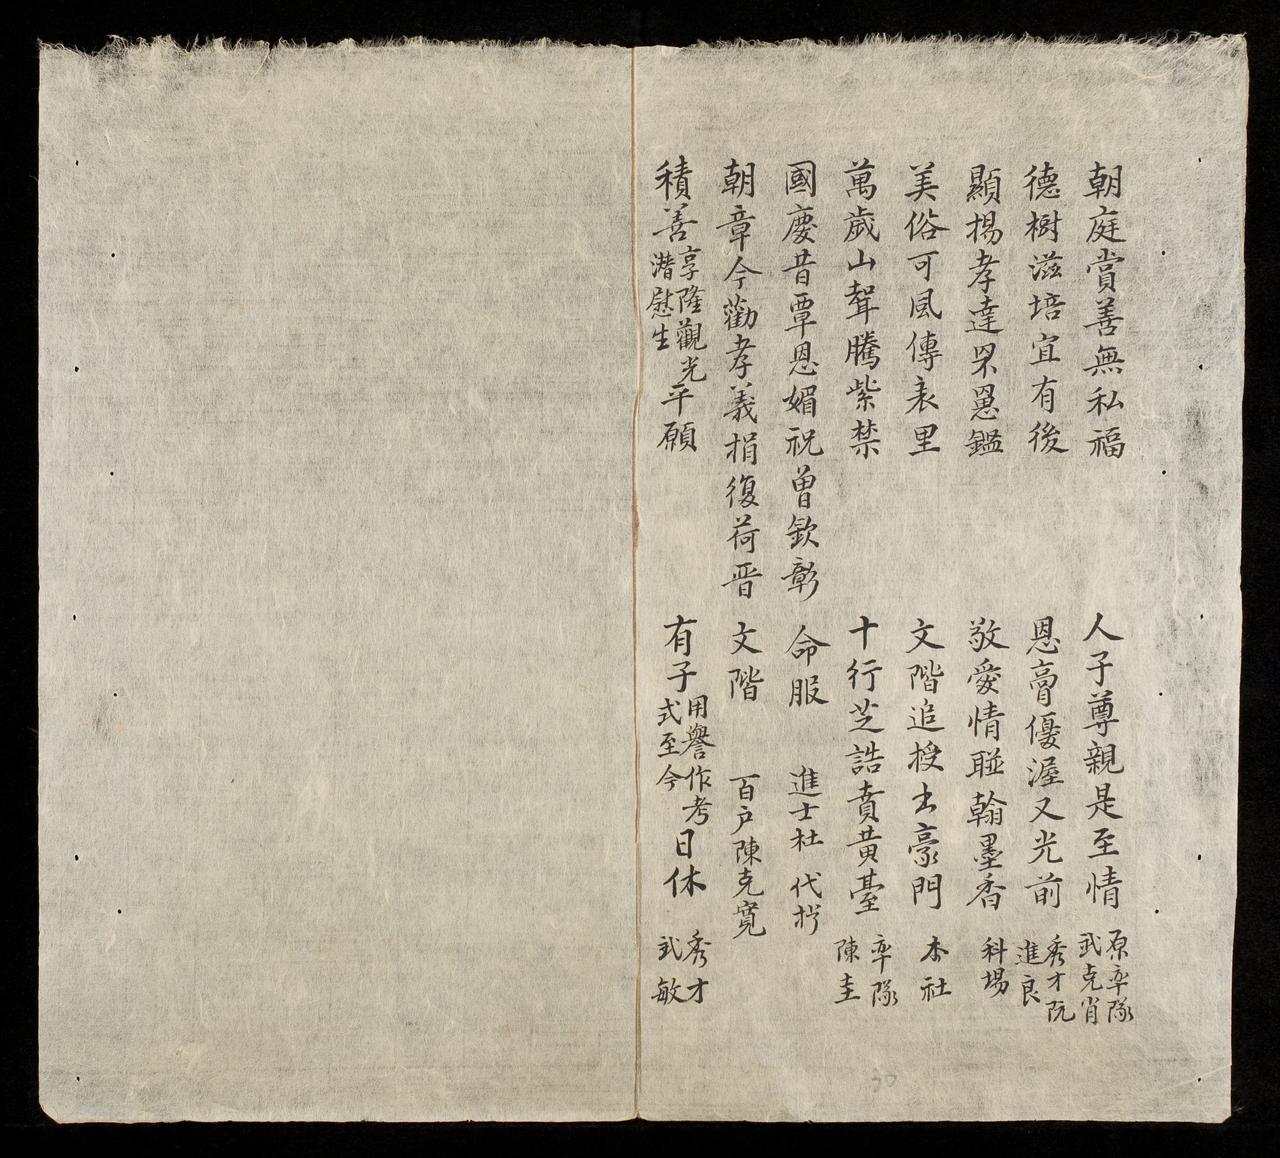 朝庭賞善無私福 人子尊親是至情 原率隊武克肖
德樹滋培宜有後 恩膏優渥又光前 秀才阮進良
顯揚孝達深恩鑑 敬愛情聯翰墨香 科場
美俗可風傳表里 文階追授出豪門 本社
萬歲山聲騰紫禁 十行芝誥賁黃臺 率隊陳圭
國慶昔覃恩媚祝曾欽彰 命服 進士杜代
朝章今勸孝義捐復荷晋 文階 百户陳克寬
積善享隆觀光潛慰生平願 有子用譽作考式至今日休 秀才武敏
30